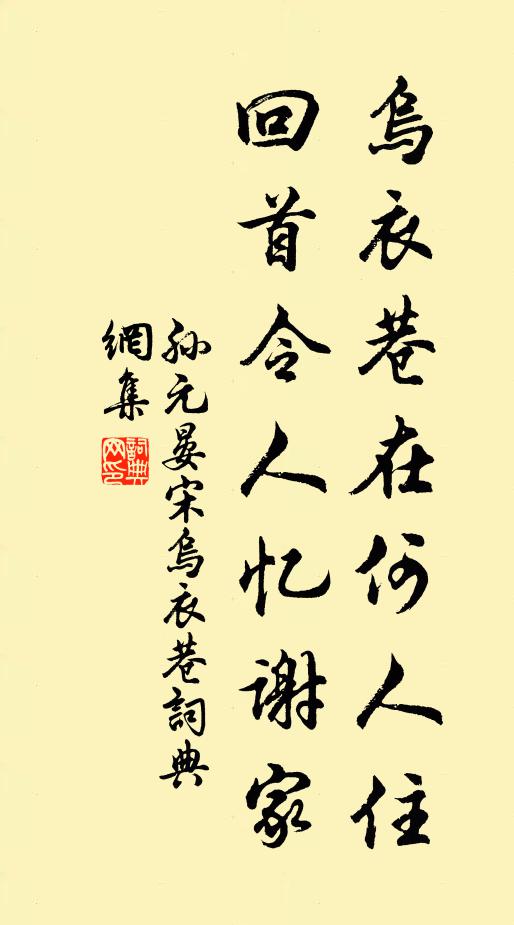 烏衣巷在何人住
回首令人忆謝家
孫元晏宋烏衣巷詞典
網集
詞典網印